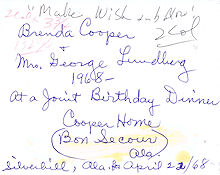 "Make Wish
2 Col
Brenda Cooper
+
Mrs. George Lundberg
1968-
At a Joint Birthday Dinner
Cooper Home
Bon Secour
Ala.
Silverhill, Ala. April 22/68